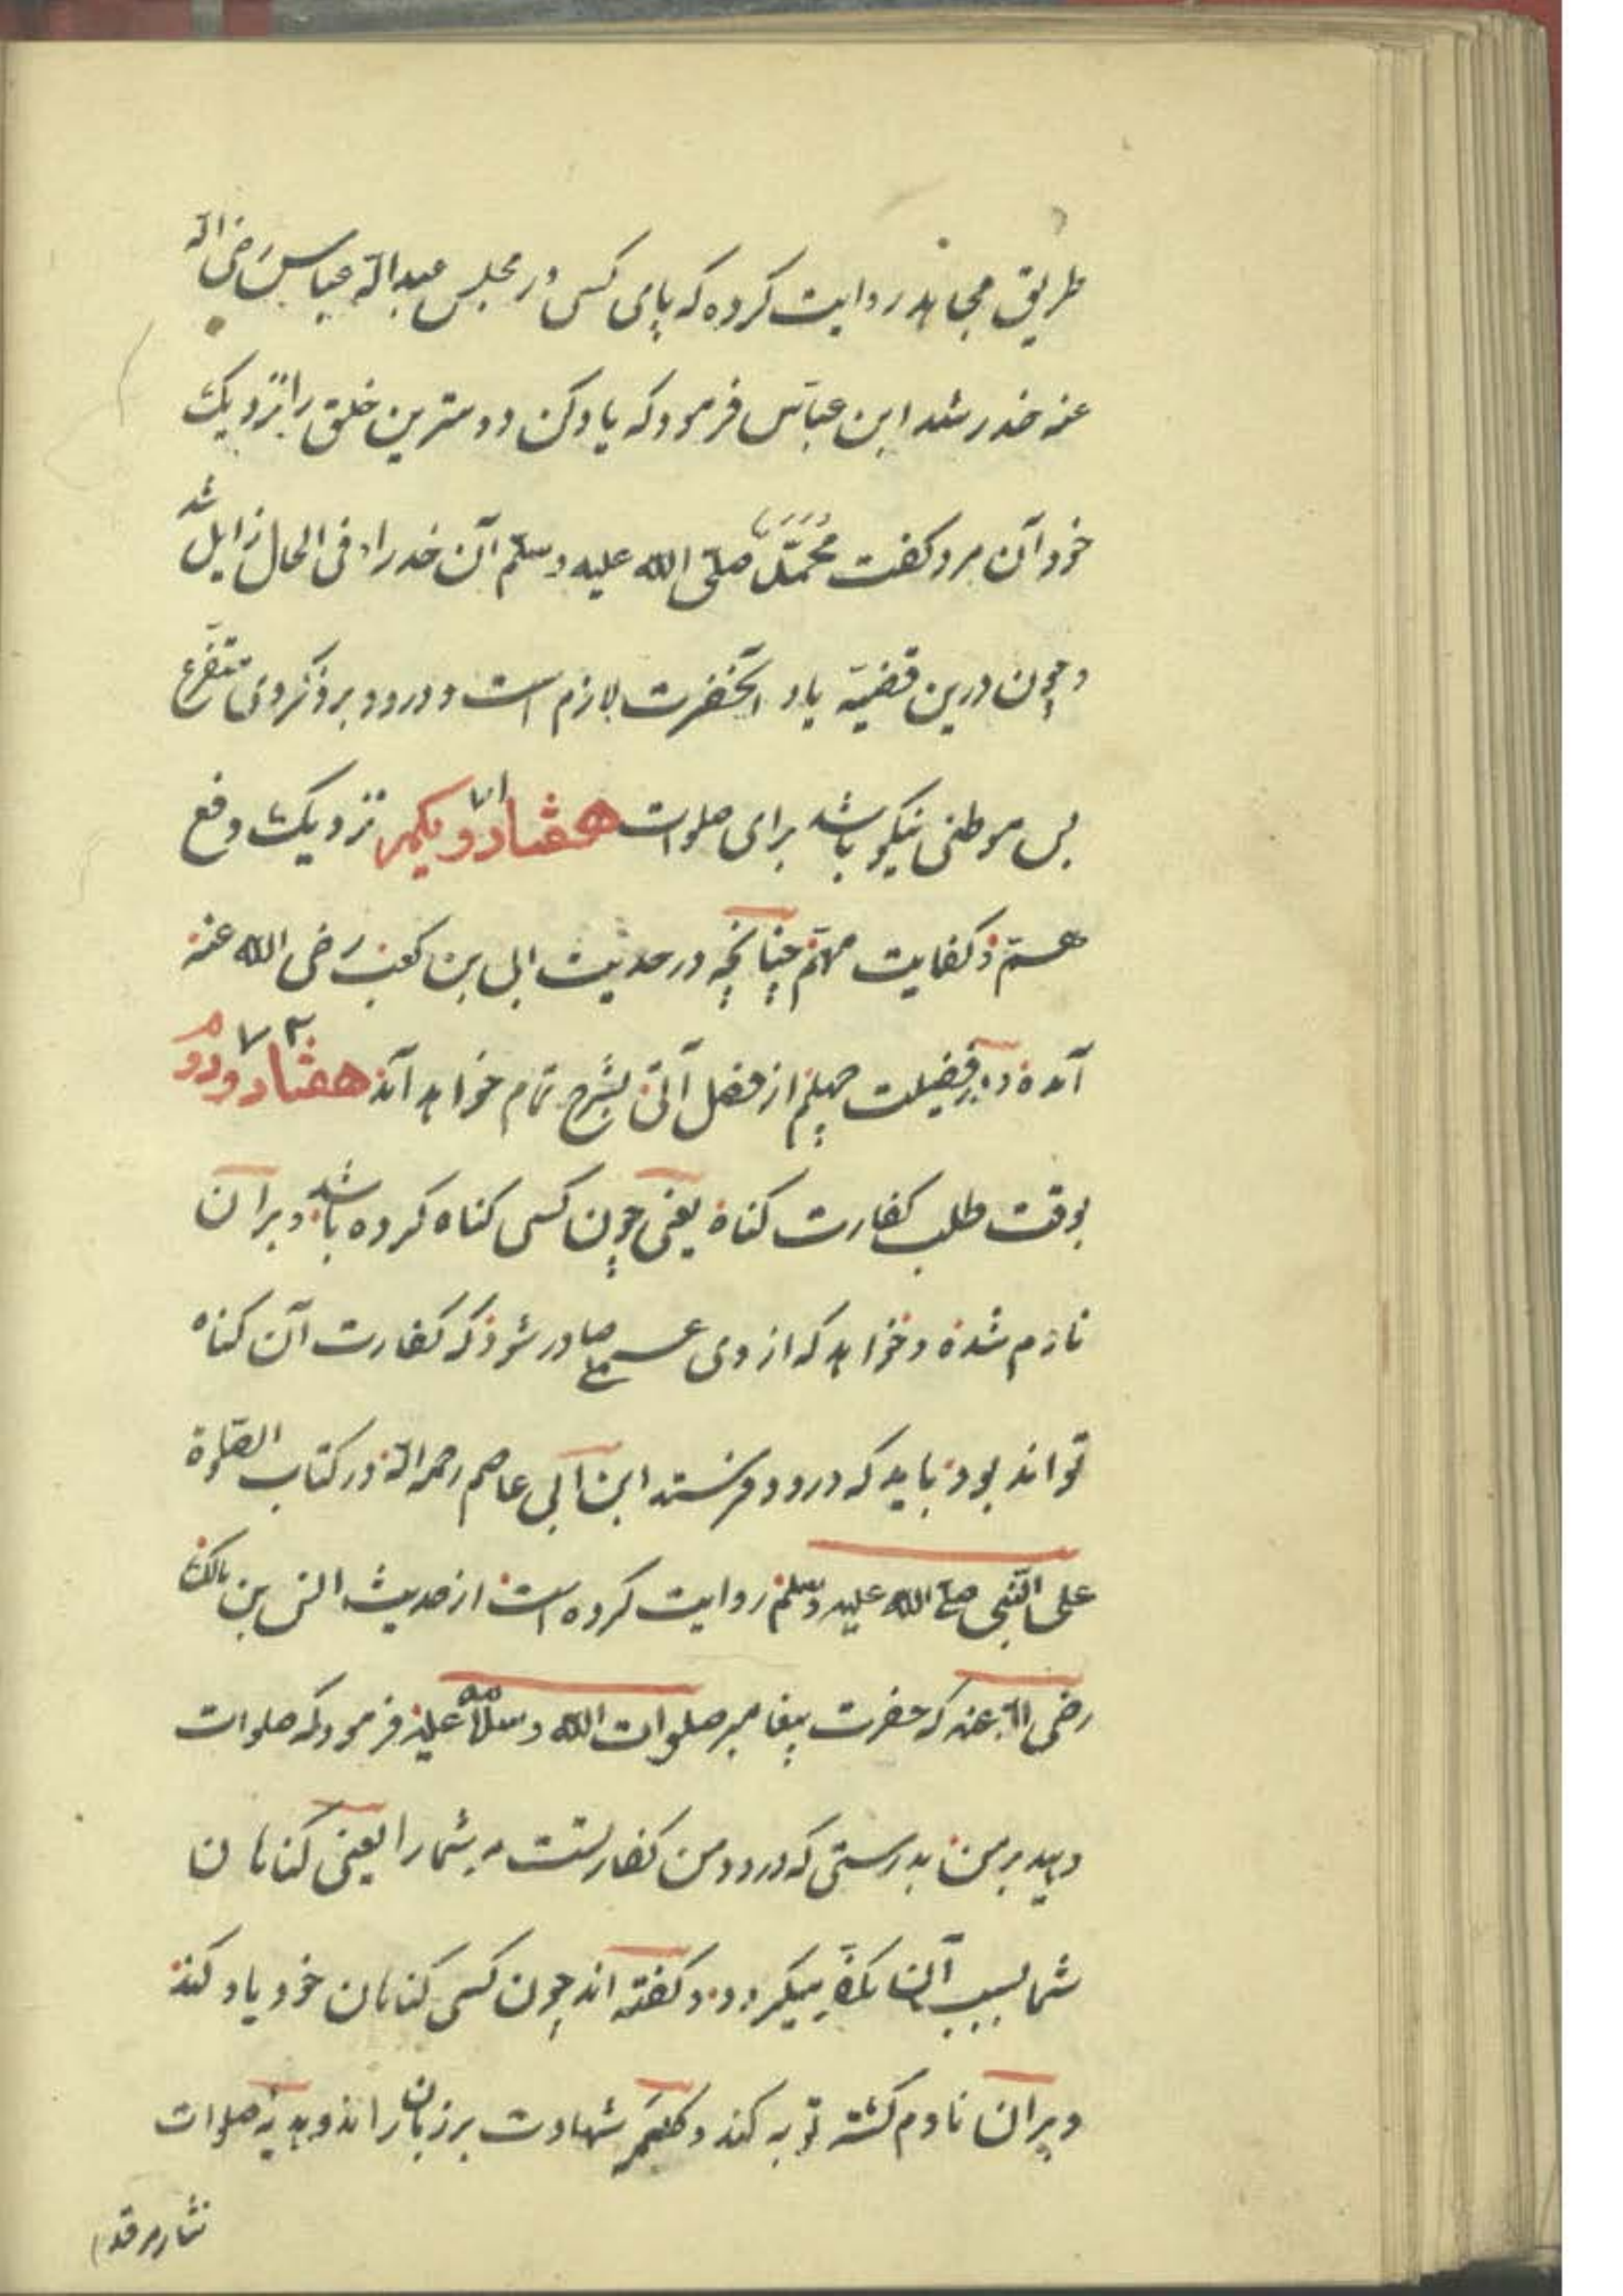 طریق مجاهد روایت کرده که پای کسی در مجلس عبدالله عباس رضی الله
عنه خدر شد ابن عباس فرمود که یاد کن دوسترین خلق را نزدیک
خود آن مرد کفت محمّد صلّی الله علیه وسلّم آن خدر او فی الحال زایل شد
و چون درین قضیّه یاد آنحضرت لازم است و درود بر ذکر وی متفرّع
بس موطنی نیکو باشد برای صلوات هفتاد و یکم ۷۱ نزدیک دفع
همّ و کفایت مهمّ چنانچه در حدیث ابی بن کعب رضی الله عنه
آمده و در فضیلت چهلم از فصل آتی بشرح تمام خواهد آمد هفتاد و دوم ۷۲
بوقت طلب کفارت کناه یعنی چون کسی کناه کرده باشد و بران
نادم شده و خواهد که از وی عملی صادر شود که کفارت آن کناه
تواند بود باید که درود فرستد ابن ابی عاصم رحمه الله در کتاب الصّلوة
علی النّبی صلی الله علیه وسلم روایت کرده است از حدیث انس بن مالک
رضی الله عنه که حضرت پیغامبر صلوات الله وسلامه علیه فرمود که صلوات
دهید بر من بدرستی که درود من کفارتست مر شمارا یعنی کناهان
شما بسبب آن مکفّر میکردد و کفته اند چون کسی کناهان خود یاد کند
و بران نادم کشته توبه کند و کلمه شهادت بر زبان راند و هدیه صلوات
نثار مرقد